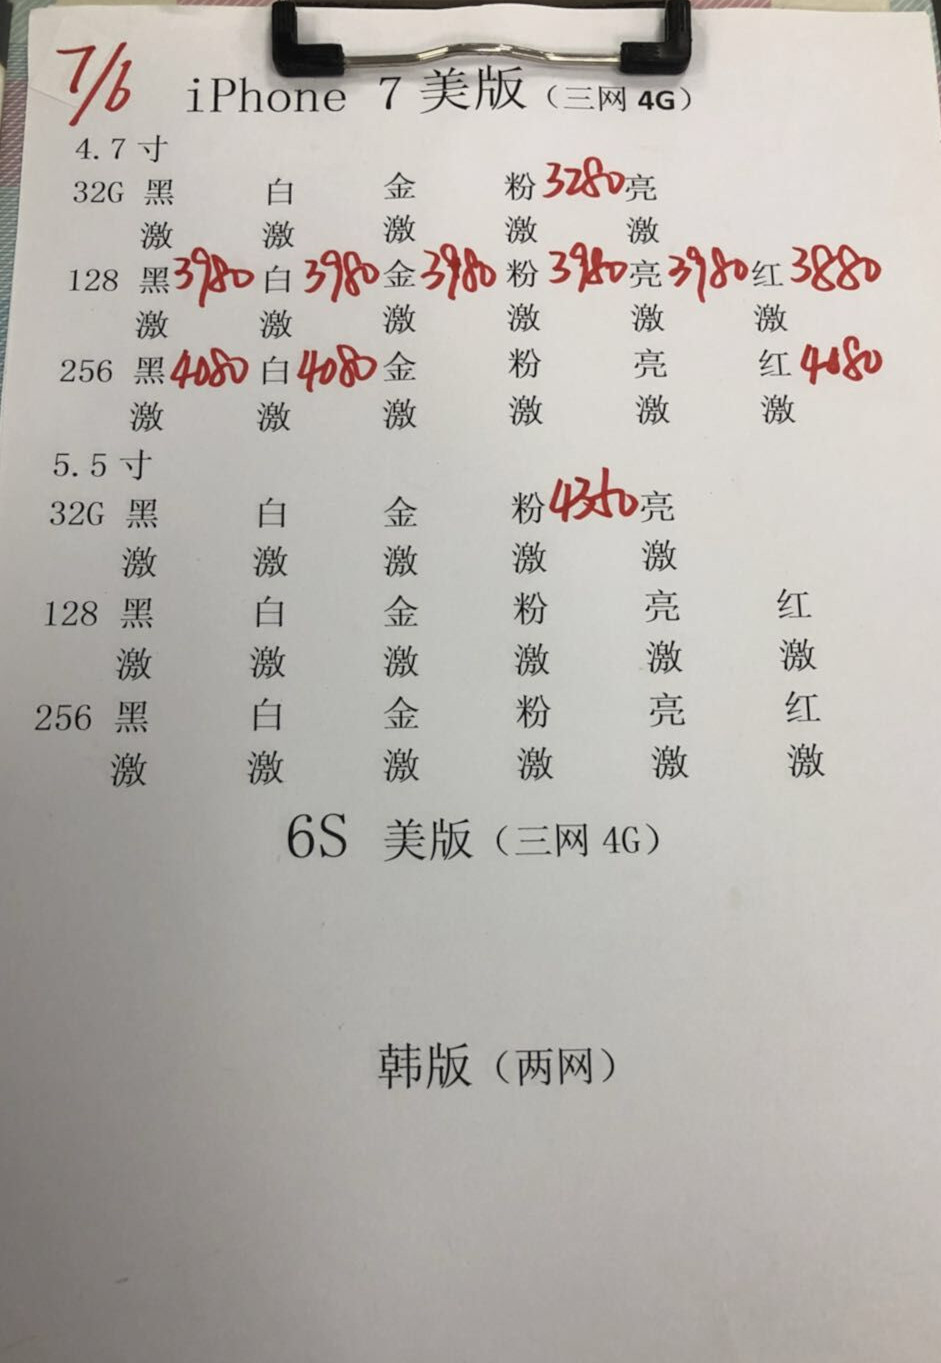 7/6
iPhone 7 美版（三网 4G）
4.7 寸
32G 黑 白 金 粉 3280 亮
激 激 激 激 激
128 黑 3980 白 3980 金 3980 粉 3980 亮 3980 红 3880
激 激 激 激 激 激
256 黑 4080 白 4080 金 粉 亮 红 4080
激 激 激 激 激 激
5.5 寸
32G 黑 白 金 粉 亮
激 激 激 激 激
128 黑 白 金 粉 亮 红
激 激 激 激 激 激
256 黑 白 金 粉 亮 红
激 激 激 激 激 激
6S 美版（三网 4G）
韩版（两网）